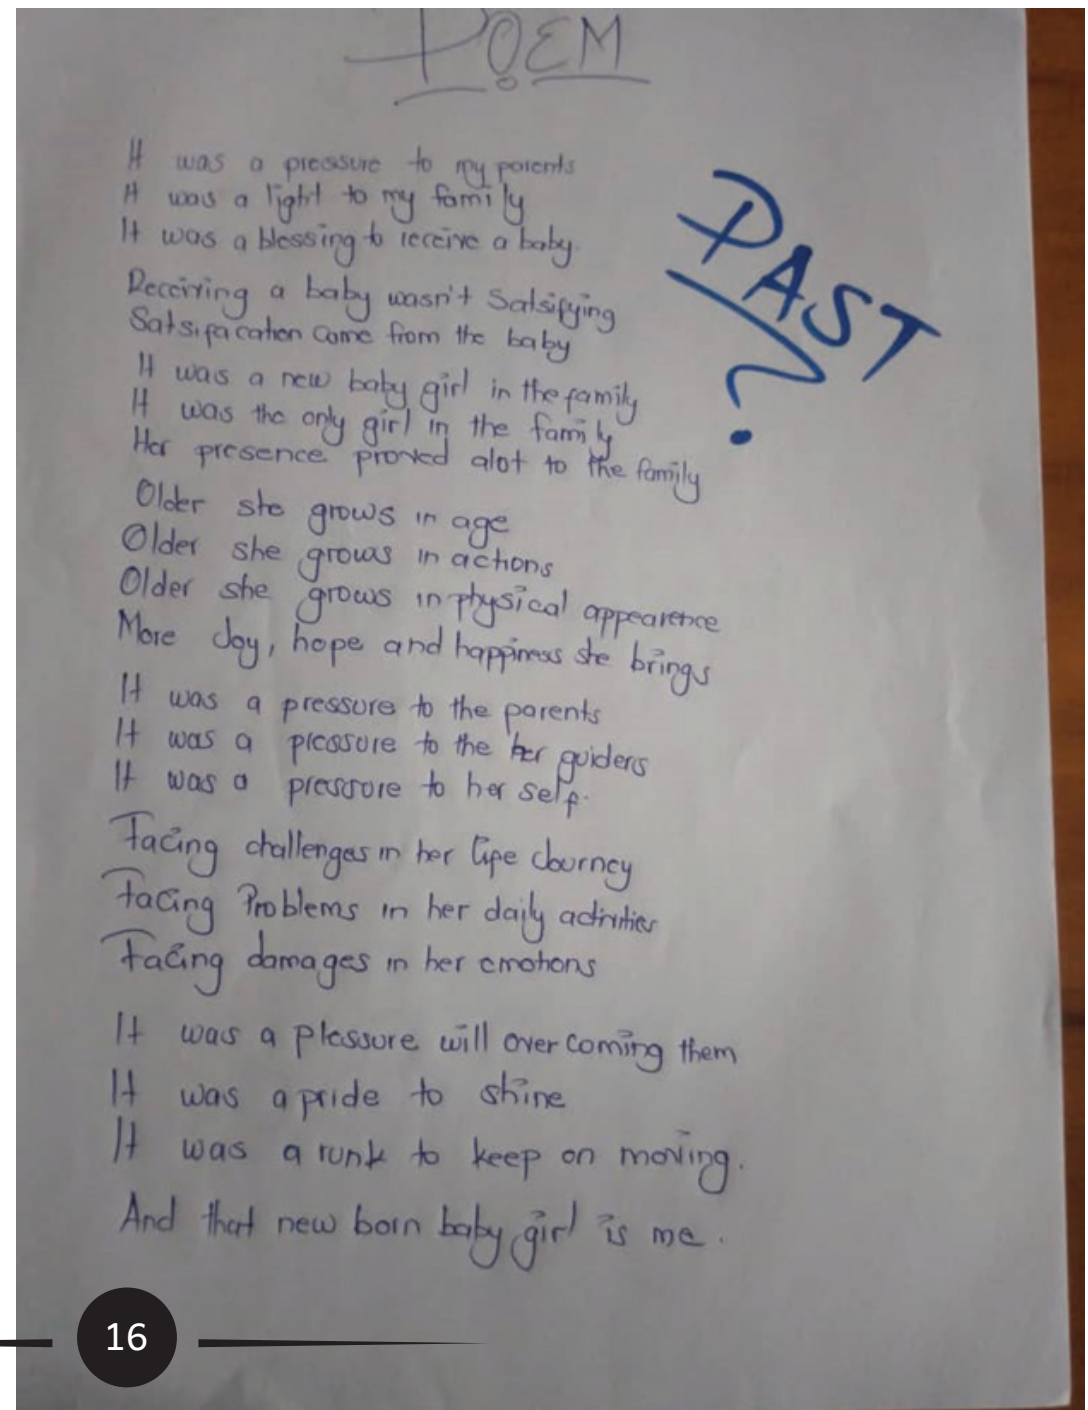 POEM
PAST?
It was a pressure to my parents
It was a light to my family
It was a blessing to receive a baby.
Receiving a baby wasn't Satsifying
Satsifacation come from the baby
It was a new baby girl in the family
It was the only girl in the family
Her presence proved alot to the family
Older she grows in age
Older she grows in actions
Older she grows in physical appearence
More Joy, hope and happiness she brings
It was a pressure to the parents
It was a pressure to the her guiders
It was a pressure to her self.
Facing challenges in her life Journey
Facing Problems in her daily activities
Facing damages in her emotions
It was a plessure will over coming them
It was a pride to shine
It was a runk to keep on moving.
And that new born baby girl is me.
16